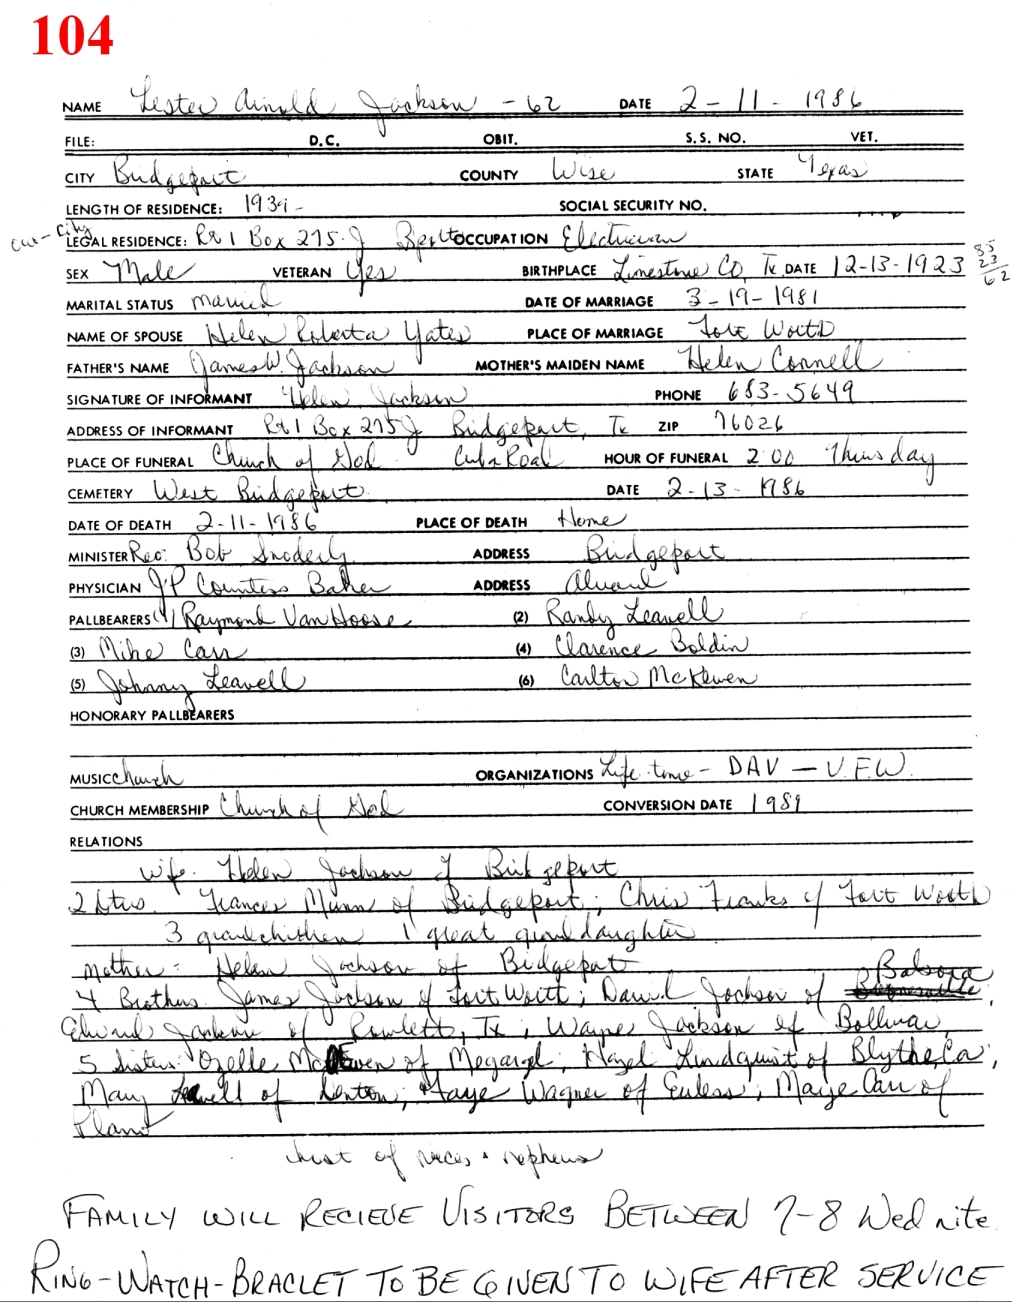 104
NAME Lester Arnold Jackson - 62 DATE 2-11-1986
FILE: D.C. OBIT. S.S. NO. VET.
CITY Bridgeport COUNTY Wise STATE Texas
LENGTH OF RESIDENCE: 1939- SOCIAL SECURITY NO.
out-City
LEGAL RESIDENCE: Rt 1 Box 275-J Bpt OCCUPATION Electrician
SEX Male VETERAN Yes BIRTHPLACE Limestone Co, Tx DATE 12-13-1923
85
23
62
MARITAL STATUS Married DATE OF MARRIAGE 3-19-1981
NAME OF SPOUSE Helen Roberta Yates PLACE OF MARRIAGE Fort Worth
FATHER'S NAME James W. Jackson MOTHER'S MAIDEN NAME Helen Connell
SIGNATURE OF INFORMANT Helen Jackson PHONE 683-5649
ADDRESS OF INFORMANT Rt 1 Box 275 J Bridgeport, Tx ZIP 76026
PLACE OF FUNERAL Church of God Cuba Road HOUR OF FUNERAL 2 00 Thursday
CEMETERY West Bridgeport DATE 2-13-1986
DATE OF DEATH 2-11-1986 PLACE OF DEATH Home
MINISTER Rev. Bob Snoderly ADDRESS Bridgeport
PHYSICIAN J.P Countess Baker ADDRESS Alvord
PALLBEARERS (1) Raymond VanHoose (2) Randy Leavell
(3) Mike Carr (4) Clarence Boldin
(5) Johnny Leavell (6) Carlton McKewen
HONORARY PALLBEARERS
MUSIC church ORGANIZATIONS Life time - DAV - V.F.W.
CHURCH MEMBERSHIP Church of God CONVERSION DATE 1981
RELATIONS
wife. Helen Jackson of Bridgeport
2 dtrs. Frances Munn of Bridgeport; Chris Franks of Fort Worth
3 grandchildren 1 great granddaughter
Mother - Helen Jackson of Bridgeport
4 Brothers. James Jackson of Fort Worth; David Jackson of Balsora
Edward Jackson of Rowlett, Tx; Wayne Jackson of Bolivar,
5 Sisters: Ozelle McKEwen of Megargel; Hazel Lindquist of Blythe, Ca;
Mary Leavell of Denton; Faye Wagner of Euless; Marye Carr of
Plano
host of nieces & nephews
FAMILY WILL RECIEVE VISITORS BETWEEN 7-8 Wed nite.
RING-WATCH-BRACLET TO BE GIVEN TO WIFE AFTER SERVICE